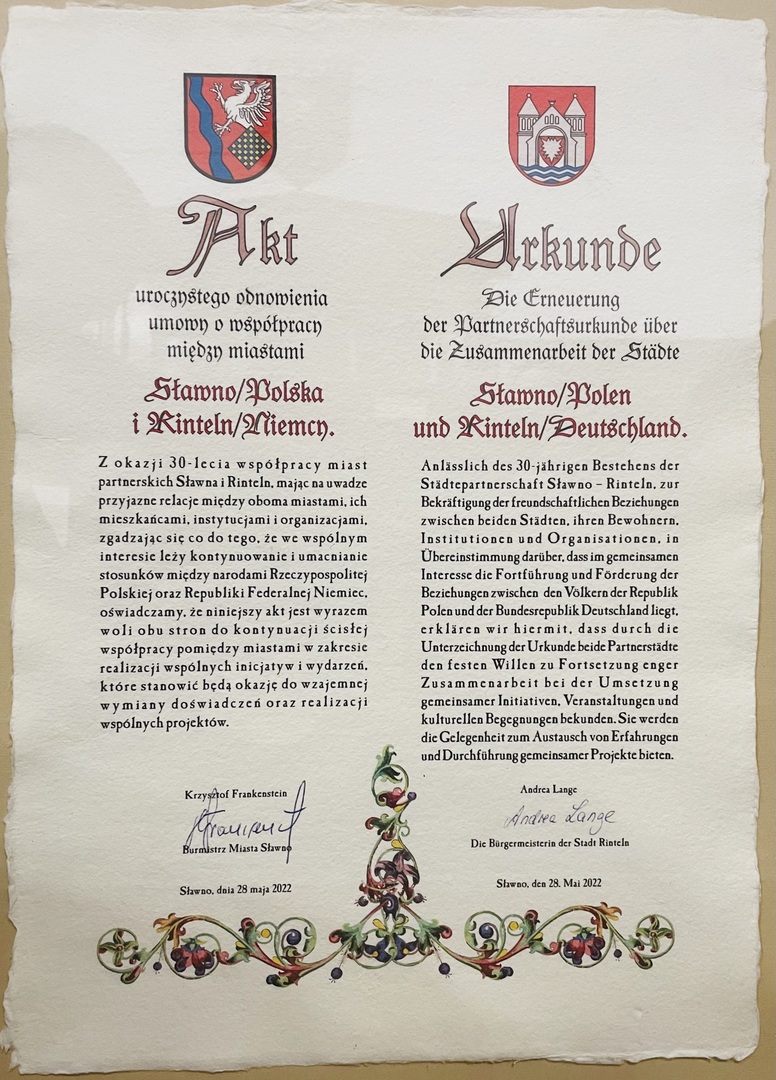 Akt
uroczystego odnowienia
umowy o współpracy
między miastami
Sławno/Polska
i Rinteln/Niemcy.
Z okazji 30-lecia współpracy miast
partnerskich Sławna i Rinteln, mając na uwadze
przyjazne relacje między oboma miastami, ich
mieszkańcami, instytucjami i organizacjami,
zgadzając się co do tego, że we wspólnym
interesie leży kontynuowanie i umacnianie
stosunków między narodami Rzeczypospolitej
Polskiej oraz Republiki Federalnej Niemiec,
oświadczamy, że niniejszy akt jest wyrazem
woli obu stron do kontynuacji ścisłej
współpracy pomiędzy miastami w zakresie
realizacji wspólnych inicjatyw i wydarzeń,
które stanowić będą okazję do wzajemnej
wymiany doświadczeń oraz realizacji
wspólnych projektów.
Krzysztof Frankenstein
Burmistrz Miasta Sławno
Sławno, dnia 28 maja 2022
Urkunde
Die Erneuerung
der Partnerschaftsurkunde über
die Zusammenarbeit der Städte
Sławno/Polen
und Rinteln/Deutschland.
Anlässlich des 30-jährigen Bestehens der
Städtepartnerschaft Sławno – Rinteln, zur
Bekräftigung der freundschaftlichen Beziehungen
zwischen beiden Städten, ihren Bewohnern,
Institutionen und Organisationen, in
Übereinstimmung darüber, dass im gemeinsamen
Interesse die Fortführung und Förderung der
Beziehungen zwischen den Völkern der Republik
Polen und der Bundesrepublik Deutschland liegt,
erklären wir hiermit, dass durch die
Unterzeichnung der Urkunde beide Partnerstädte
den festen Willen zu Fortsetzung enger
Zusammenarbeit bei der Umsetzung
gemeinsamer Initiativen, Veranstaltungen und
kulturellen Begegnungen bekunden. Sie werden
die Gelegenheit zum Austausch von Erfahrungen
und Durchführung gemeinsamer Projekte bieten.
Andrea Lange
Andrea Lange
Die Bürgermeisterin der Stadt Rinteln
Sławno, den 28. Mai 2022